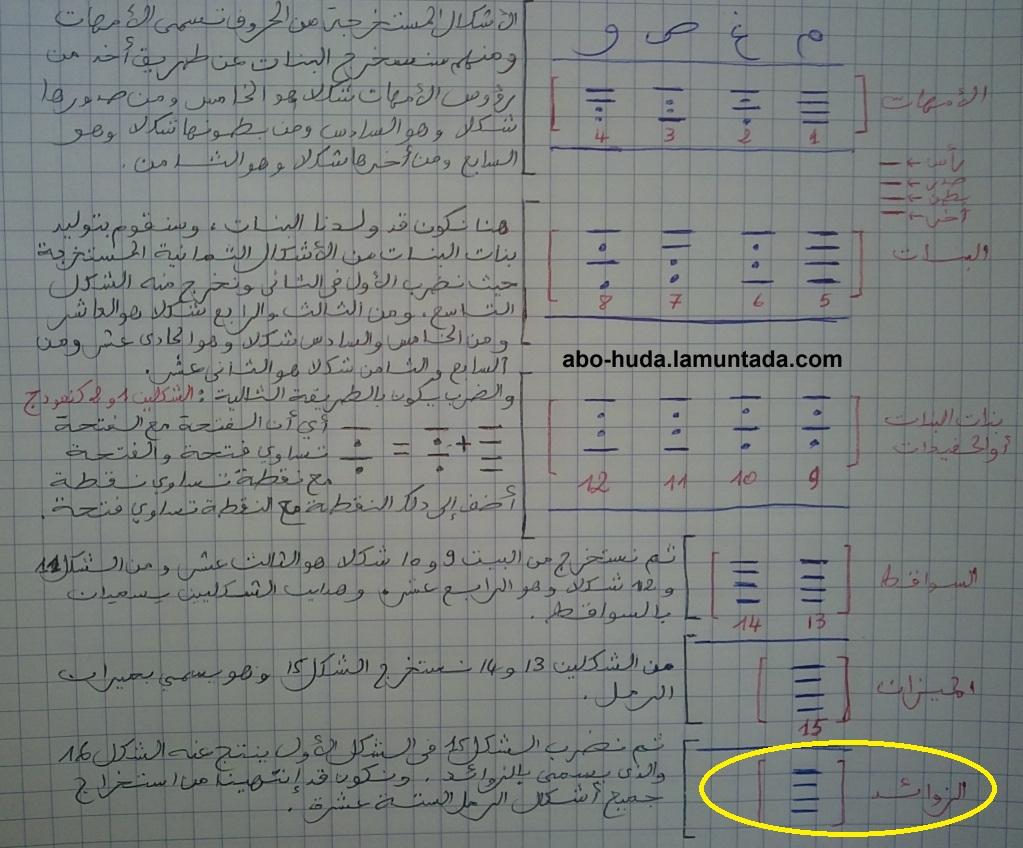 م غ ص و
الأمهات
1 2 3 4
الأشكال المستخرجة من الحروف تسمى الأمهات
ومنهم نستخرج البنات عن طريق أخد من
رؤوس الأمهات شكلا هو الخامس ومن صدورها
شكلا وهو السادس ومن بطونها شكلا وهو
السابع ومن أخرها شكلا وهو الثامن.
رأس
صدر
بطن
أخر
البنات
5 6 7 8
هنا نكون قد ولدنا البنات، وسنقوم بتوليد
بنات البنات من الأشكال الثمانية المستخرجة
حيث نضرب الأول في الثاني ونخرج منه الشكل
التاسع، ومن الثالث والرابع شكلا هو العاشر
ومن الخامس والسادس شكلا وهو الحادي عشر ومن
السابع والثامن شكلا هو الثاني عشر.
abo-huda.lamuntada.com
بنات البنات
أو الحفيدات
9 10 11 12
والضرب يكون بالطريقة التالية: الشكلين 1 و 2 كنمودج
أي أن الفتحة مع الفتحة
+ =
تساوي فتحة والفتحة
مع نقطة تساوي نقطة
أضف إلى دلك النقطة مع النقطة تساوي فتحة.
السواقط
13 14
ثم نستخرج من البيت 9 و 10 شكلا هو الثالث عشر ومن الشكل 11
و 12 شكلا وهو الرابع عشر. وهدايب الشكليين يسميان
بالسواقط.
الميزان
15
من الشكلين 13 و 14 نستخرج الشكل 15 وهو يسمي بميزان
الرمل.
الزوائد
ثم نضرب الشكل 15 في الشكل الأول ينتج عنه الشكل 16
والذي يسمى بالزوائد. ونكون قد إنتهينا من استخراج
جميع أشكال الرمل الستة عشرة.